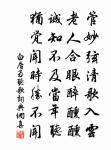 管妙弦清歌入雲
老人合眼醉醺醺
誠知不及當年聽
猶覺聞時勝不聞
白居易聽歌詞典網